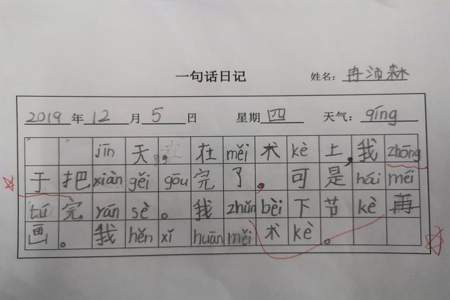 一句话日记
姓名:冉沛霖
2019年12月5日 星期四 天气:qíng
jīn天。在měi术kè上,我zhōng
于把xiàn gěi gōu完了。可是hái méi
tú完yán sè。我zhǔn bèi下节kè再
画。我hěn xǐ huān měi术kè。